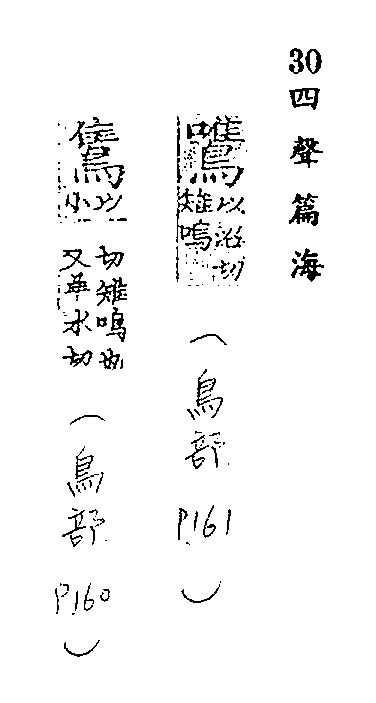 30四聲篇海
鷕
以沼切
雉鳴
(鳥部 P.161)
以
小
切雉鳴也
又羊水切
(鳥部 P.160)